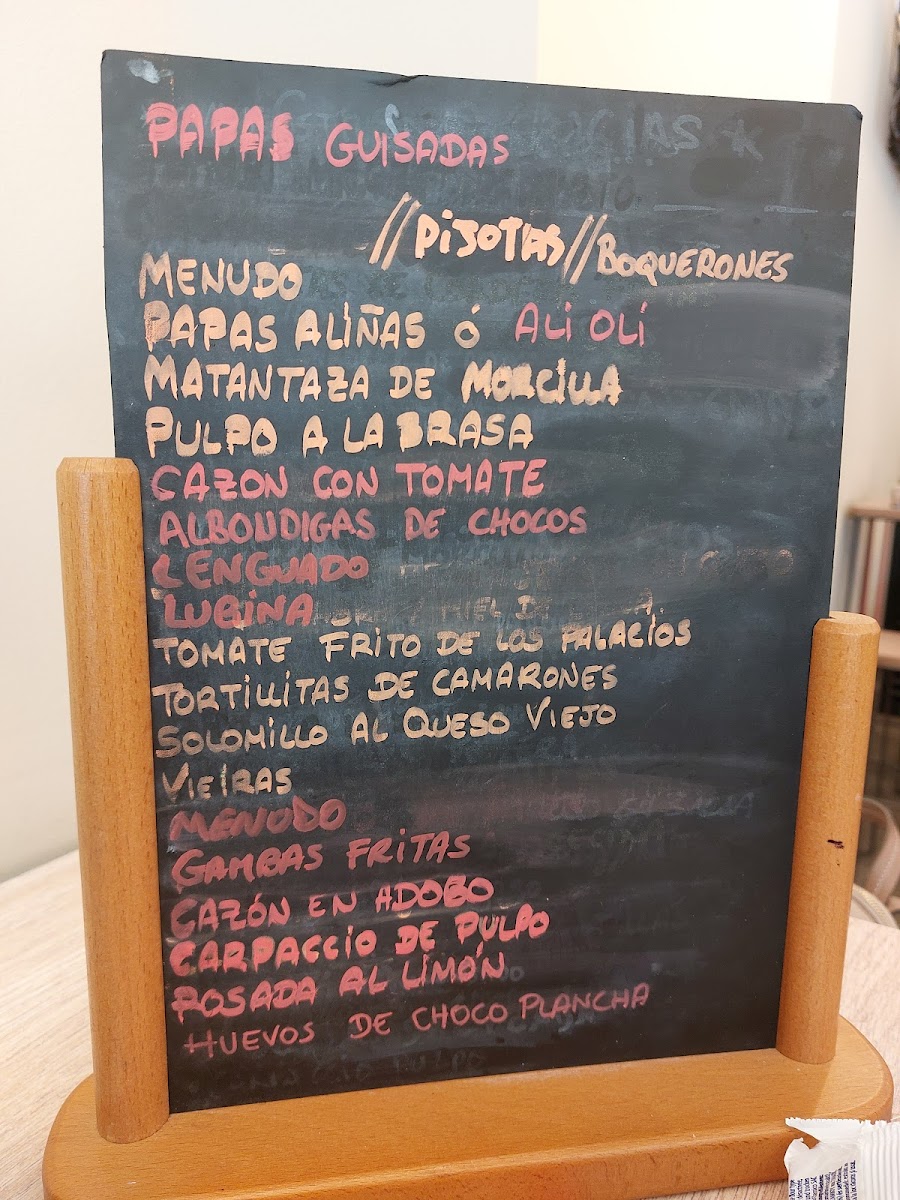 PAPAS GUISADAS
//PIJOTAS//BOQUERONES
MENUDO
PAPAS ALIÑAS ó ALI OLI
MATANTAZA DE MORCILLA
PULPO A LA BRASA
CAZON CON TOMATE
ALBONDIGAS DE CHOCOS
LENGUADO
LUBINA
TOMATE FRITO DE LOS PALACIOS
TORTILLITAS DE CAMARONES
SOLOMILLO AL QUESO VIEJO
VIEIRAS
MENUDO
GAMBAS FRITAS
CAZÓN EN ADOBO
CARPACCIO DE PULPO
ROSADA AL LIMÓN
HUEVOS DE CHOCO PLANCHA